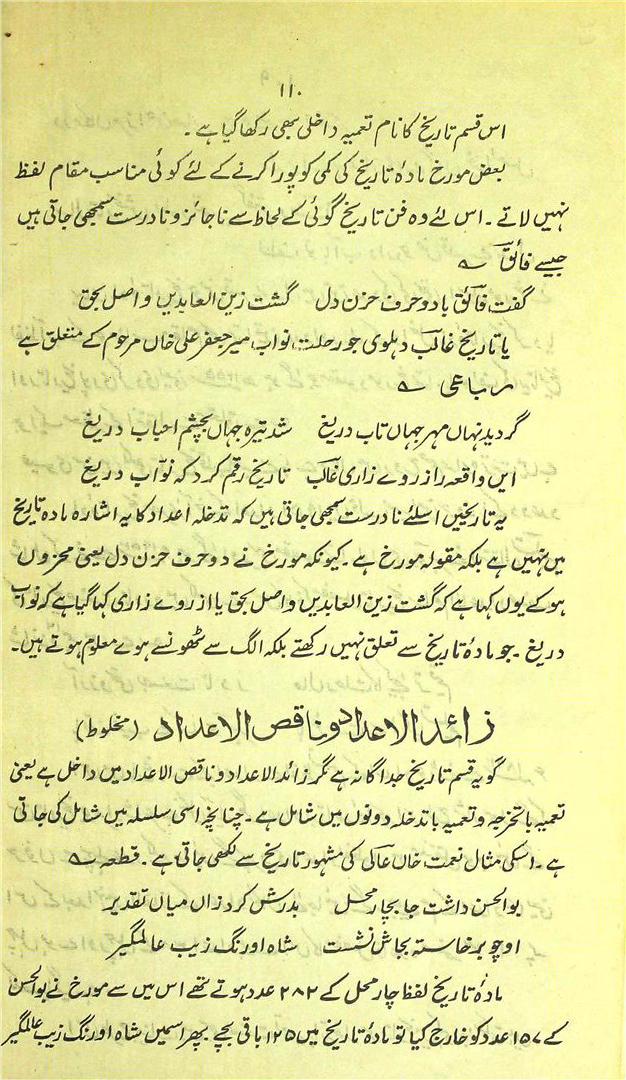 ۱۱۰
اس قسم تاریخ کا نام تعمیہ داخلی بھی رکھا گیا ہے ۔
بعض مورخ مادۂ تاریخ کی کمی کو پورا کرنے کے لئے کوئی مناسب مقام لفظ
نہیں لاتے ۔ اس لئے وہ فن تاریخ گوئی کے لحاظ سے ناجائز و نادرست سمجھی جاتی ہیں
جیسے فائق ؎
گفت فائق با دو حرف حزن دل گشت زین العابدیں واصل بحق
یا تاریخ غالب دہلوی جو رحلت نواب میر جعفر علی خاں مرحوم کے متعلق ہے
رباعی ؎
گردید نہاں مہر جہاں تاب دریغ شد تیرہ جہاں بچشم احباب دریغ
ایں واقعہ را ز روے زاری غالب تاریخ رقم کرد کہ نوّاب دریغ
یہ تاریخیں اسلئے نادرست سمجھی جاتی ہیں کہ تدخلہ اعداد کا یہ اشارہ مادہ تاریخ
میں نہیں ہے بلکہ مقولہ مورخ ہے ۔ کیونکہ مورخ نے دو حرف حزن دل یعنی محزوں
ہو کے یوں کہا ہے کہ گشت زین العابدیں واصل بحق یا از روے زاری کہا گیا ہے کہ نواب
دریغ ۔ جو مادۂ تاریخ سے تعلق نہیں رکھتے بلکہ الگ سے ٹھونسے ہوے معلوم ہوتے ہیں ۔
زائد الاعداد و ناقص الاعداد (مخلوط)
گو یہ قسم تاریخ جداگانہ ہے مگر زائد الاعداد و ناقص الاعداد میں داخل ہے یعنی
تعمیہ با تخرجہ و تعمیہ با تدخلہ دونوں میں شامل ہے ۔ چنانچہ اسی سلسلہ میں شامل کی جاتی
ہے ۔ اسکی مثال نعمت خاں عالی کی مشہور تاریخ سے لکھی جاتی ہے ۔ قطعہ ؎
بوالحسن داشت جا بچار محل بدرش کرد زاں میاں تقدیر
او چو برخاستہ بجاش نشست شاہ اورنگ زیب عالمگیر
مادۂ تاریخ لفظ چار محل کے ۲۸۲ عدد ہوتے تھے اس میں سے مورخ نے بوالحسن
کے ۱۵۷ عدد کو خارج کیا تو مادۂ تاریخ میں ۱۲۵ باقی بچے ۔ پھر اسمیں شاہ اورنگ زیب عالمگیر